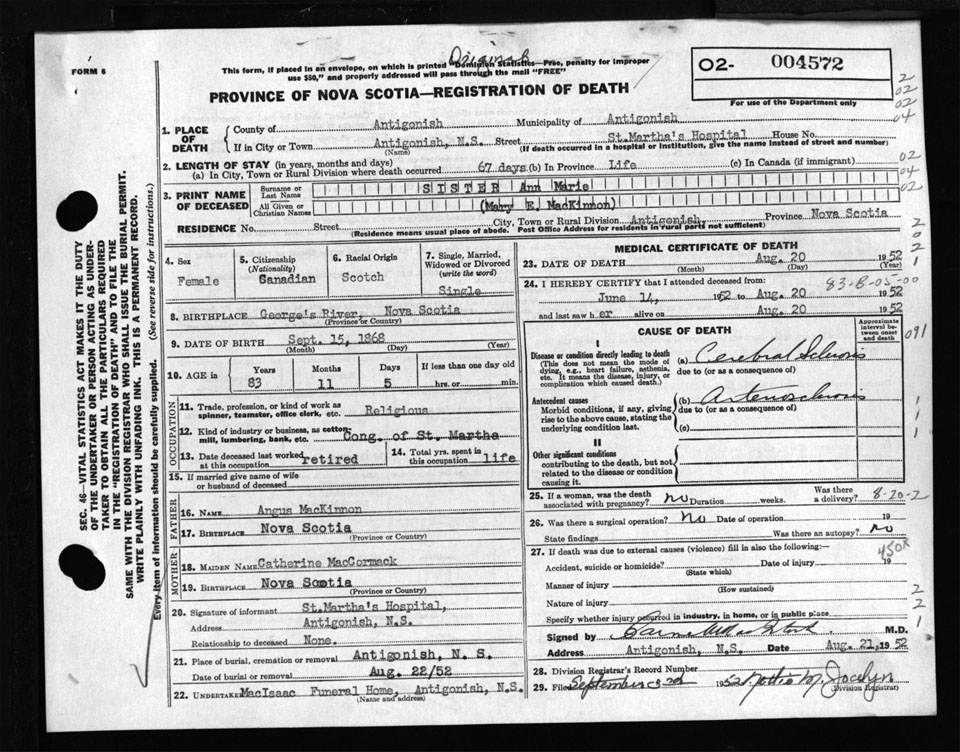 FORM 6
Original
This form, if placed in an envelope, on which is printed "Dominion Statistics—Free, penalty for improper
use $50," and properly addressed will pass through the mail "FREE"
PROVINCE OF NOVA SCOTIA—REGISTRATION OF DEATH
02- 004572
For use of the Department only
2
02
02
04
1. PLACE OF DEATH
County of Antigonish Municipality of Antigonish
If in City or Town Antigonish, N.S. Street St.Martha's Hospital House No.
(Name) (If death occurred in a hospital or institution, give the name instead of street and number)
2. LENGTH OF STAY (in years, months and days)
(a) In City, Town or Rural Division where death occurred 67 days (b) In Province Life (c) In Canada (if immigrant)
02
04
02
3. PRINT NAME OF DECEASED
Surname or Last Name SISTER Ann Marie
All Given or Christian Names (Mary E. MacKinnon)
RESIDENCE No. Street City, Town or Rural Division Antigonish, Province Nova Scotia
(Residence means usual place of abode. Post Office Address for residents in rural parts not sufficient)
4. Sex
Female
5. Citizenship
(Nationality)
Canadian
6. Racial Origin
Scotch
7. Single, Married,
Widowed or Divorced
(write the word)
Single
8. BIRTHPLACE George's River, Nova Scotia
(Province or Country)
9. DATE OF BIRTH Sept. 15, 1868
(Month) (Day) (Year)
10. AGE in
Years Months Days If less than one day old
83 11 5 hrs. or min.
OCCUPATION
11. Trade, profession, or kind of work as
spinner, teamster, office clerk, etc. Religious
12. Kind of industry or business, as cotton
mill, lumbering, bank, etc. Cong. of St. Martha
13. Date deceased last worked
at this occupation retired
14. Total yrs. spent in
this occupation life
15. If married give name of wife
or husband of deceased
FATHER
16. NAME Angus MacKinnon
17. BIRTHPLACE Nova Scotia
(Province or Country)
MOTHER
18. MAIDEN NAME Catherine MacCormack
19. BIRTHPLACE Nova Scotia
(Province or Country)
20. Signature of informant St.Martha's Hospital,
Address Antigonish, N.S.
Relationship to deceased None.
21. Place of burial, cremation or removal Antigonish, N. S.
Date of burial, cremation or removal Aug. 22/52
22. UNDERTAKER MacIsaac Funeral Home, Antigonish, N.S.
(Name and address)
MEDICAL CERTIFICATE OF DEATH
23. DATE OF DEATH Aug. 20 1952
(Month) (Day) (Year)
24. I HEREBY CERTIFY that I attended deceased from: 83-8-05-00
June 14, 1952 to Aug. 20 1952
and last saw h er alive on Aug. 20 1952
CAUSE OF DEATH
Approximate
interval between
onset
and death
091
I
Disease or condition directly leading to death
(This does not mean the mode of
dying, e.g., heart failure, asthenia,
etc. It means the disease, injury, or
complication which caused death.)
(a) Cerebral Sclerosis
due to (or as a consequence of)
Antecedent causes
Morbid conditions, if any, giving
rise to the above cause, stating the
underlying condition last.
(b) Arteriosclerosis
due to (or as a consequence of)
(c)
II
Other significant conditions
contributing to the death, but not
related to the disease or condition
causing it.
25. If a woman, was the death
associated with pregnancy? no Duration weeks. Was there
a delivery? 8-20-2
26. Was there a surgical operation? no Date of operation 19
State findings Was there an autopsy? no
27. If death was due to external causes (violence) fill in also the following:— 450x
Accident, suicide or homicide? Date of injury 19
(State which)
Manner of injury
(How sustained)
Nature of injury
Specify whether injury occurred in industry, in home, or in public place
Signed by M.D.
Address Antigonish, N.S. Date Aug. 21, 1952
28. Division Registrar's Record Number
29. Filed September 1952
(Division Registrar)
SEC. 46—VITAL STATISTICS ACT MAKES IT THE DUTY
OF THE UNDERTAKER OR PERSON ACTING AS UNDER-
TAKER TO OBTAIN ALL THE PARTICULARS REQUIRED
IN THE "REGISTRATION OF DEATH" AND TO FILE THE
SAME WITH THE DIVISION REGISTRAR WHO SHALL ISSUE THE BURIAL PERMIT.
WRITE PLAINLY WITH UNFADING INK. THIS IS A PERMANENT RECORD.
Every item of information should be carefully supplied. (See reverse side for instructions.)